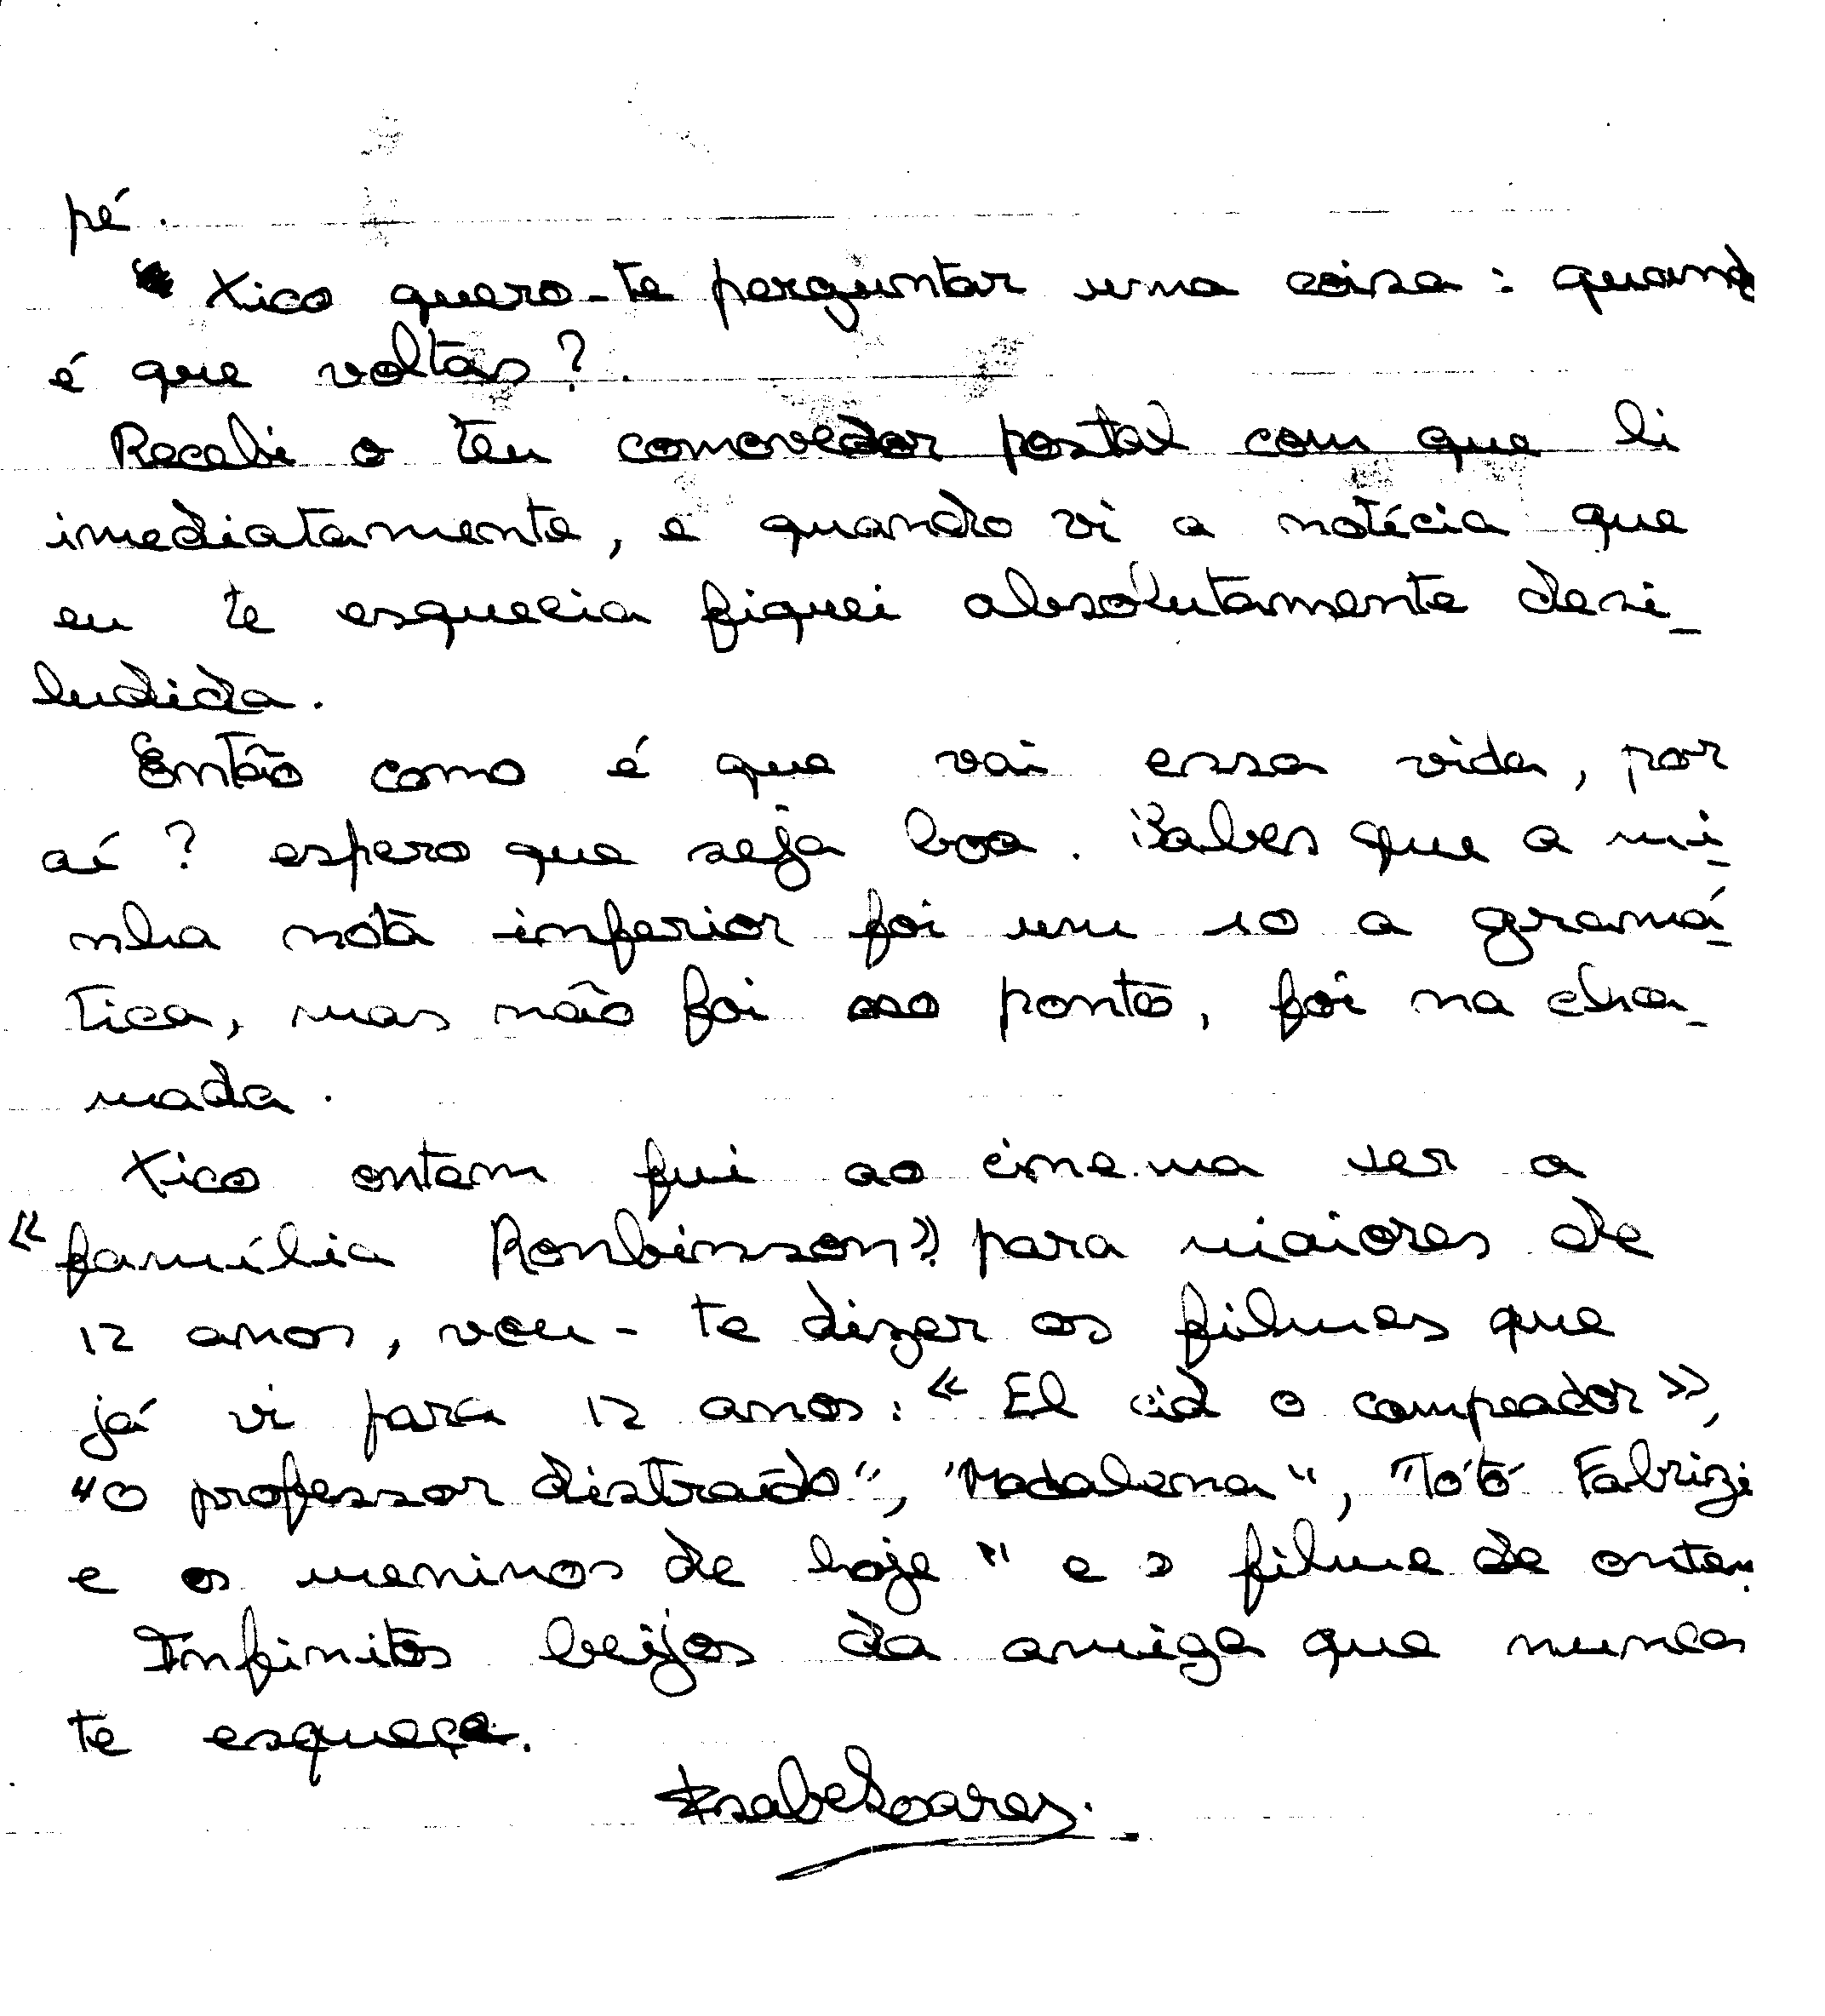 pé.
Xico quero-te perguntar uma coisa: quando
é que voltas?.
Recebi o teu comovedor postal com que li
imediatamente, e quando vi a notícia que
eu te esquecia fiquei absolutamente desi-
ludida.
Então como é que vai essa vida, por
aí? espero que seja boa. Sabes que a mi-
nha nota inferior foi um 10 a gramá-
tica, mas não foi no ponto, foi na cha-
mada.
Xico ontem fui ao cinema ver a
«família Ronbinsson». para maiores de
12 anos, vou-te dizer os filmes que
já vi para 12 anos: «El cid o campeador»,
"O professor distraído", "Madalena", "Tótó Fabrizi
e os meninos de hoje" e o filme de ontem.
Infinitos beijos da amiga que nunca
te esquece.
Isabel Soares.